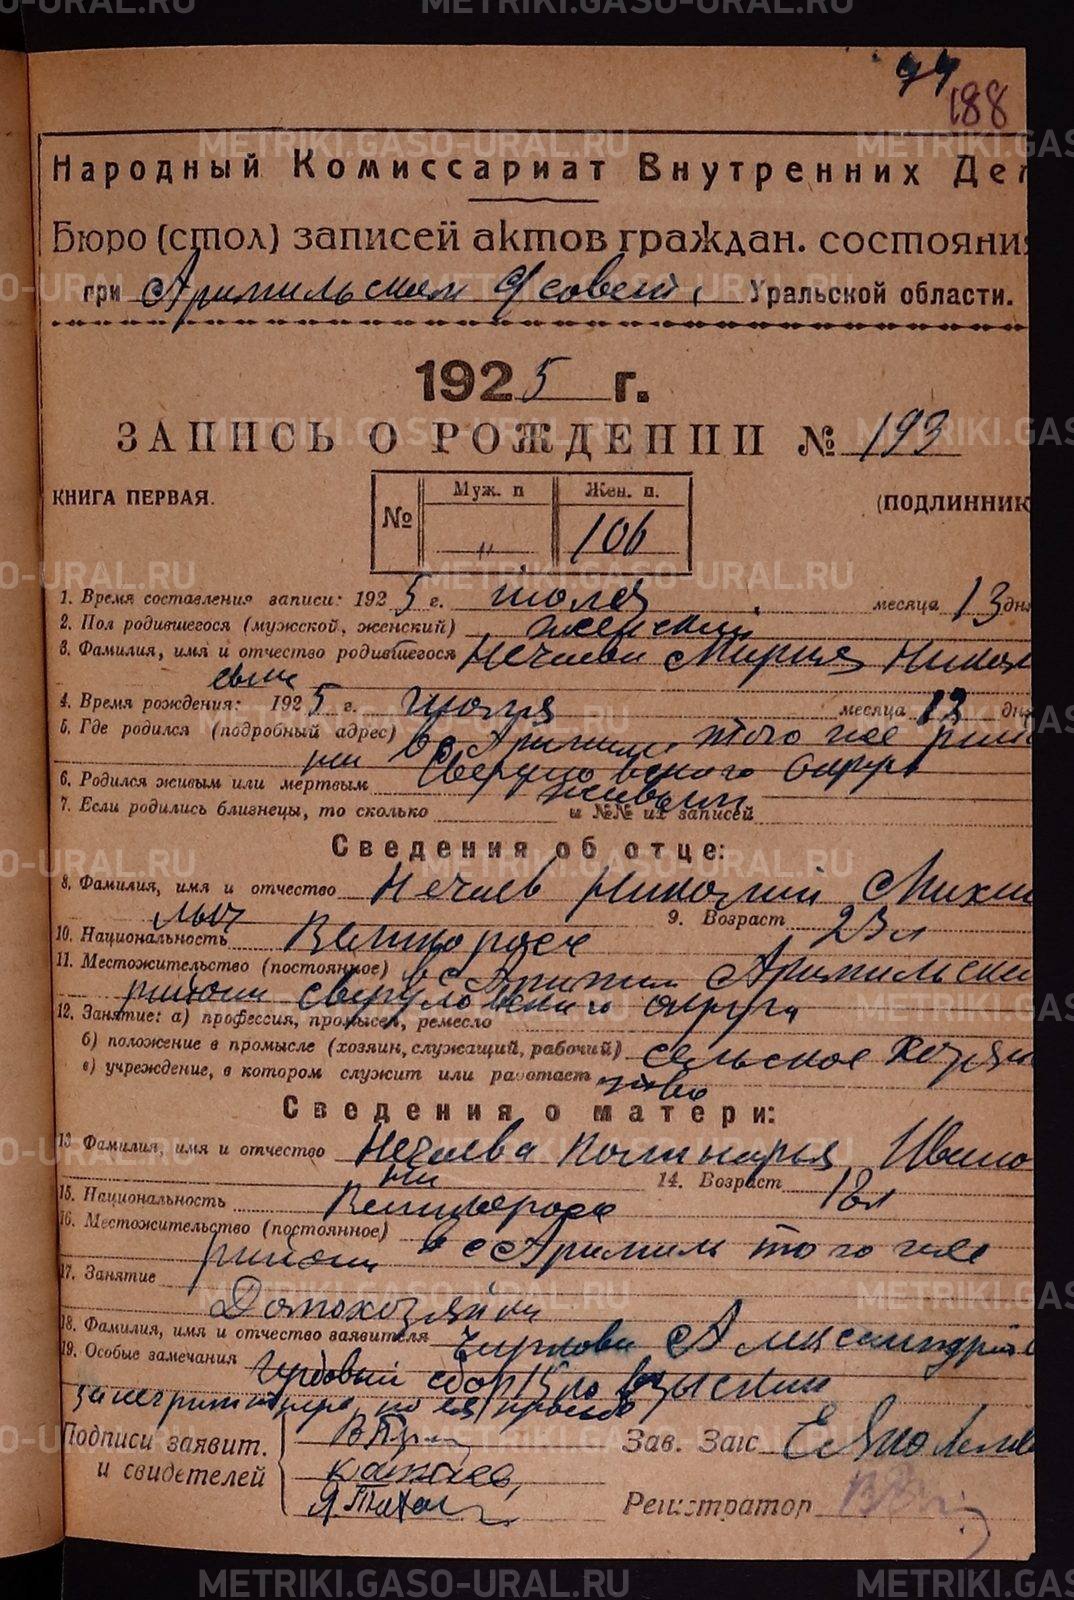 188
Народный Комиссариат Внутренних Де
Бюро (стол) записей актов граждан. состояния
при Арамильском совете, Уральской области.
1925 г.
ЗАПИСЬ О РОЖДЕНИИ № 193
КНИГА ПЕРВАЯ. (ПОДЛИННИК
№ Муж. п Жен. п.
" 106
1. Время составления записи: 1925 г. июля месяца 13 дня
2. Пол родившегося (мужской, женский) женский
3. Фамилия, имя и отчество родившегося Нечаева Мария Никола
евна
4. Время рождения: 1925 г. июля месяца 12 дня
5. Где родился (подробный адрес) в с Арамили того же райо
на Свердловского округа
6. Родился живым или мертвым живым
7. Если родились близнецы, то сколько и №№ их записей
Сведения об отце:
8. Фамилия, имя и отчество Нечаев Николай Михай
лыч 9. Возраст 23 л
10. Национальность Великоросс
11. Местожительство (постоянное) в с Арамили Арамильски
района Свердловского округа
12. Занятие: а) профессия, промысел, ремесло
б) положение в промысле (хозяин, служащий, рабочий) сельское хозяй
в) учреждение, в котором служит или работает ство
Сведения о матери:
13. Фамилия, имя и отчество Нечаева Ивано
на 14. Возраст 18 л
15. Национальность Великоросса
16. Местожительство (постоянное) в с Арамиль того же
района
17. Занятие
Домохозяйка
18. Фамилия, имя и отчество заявителя Александр
19. Особые замечания Гербовый сбор взыскан
Подписи заявит.
и свидетелей
Зав. Загс
Регистратор
METRIKI.GASO-URAL.RU